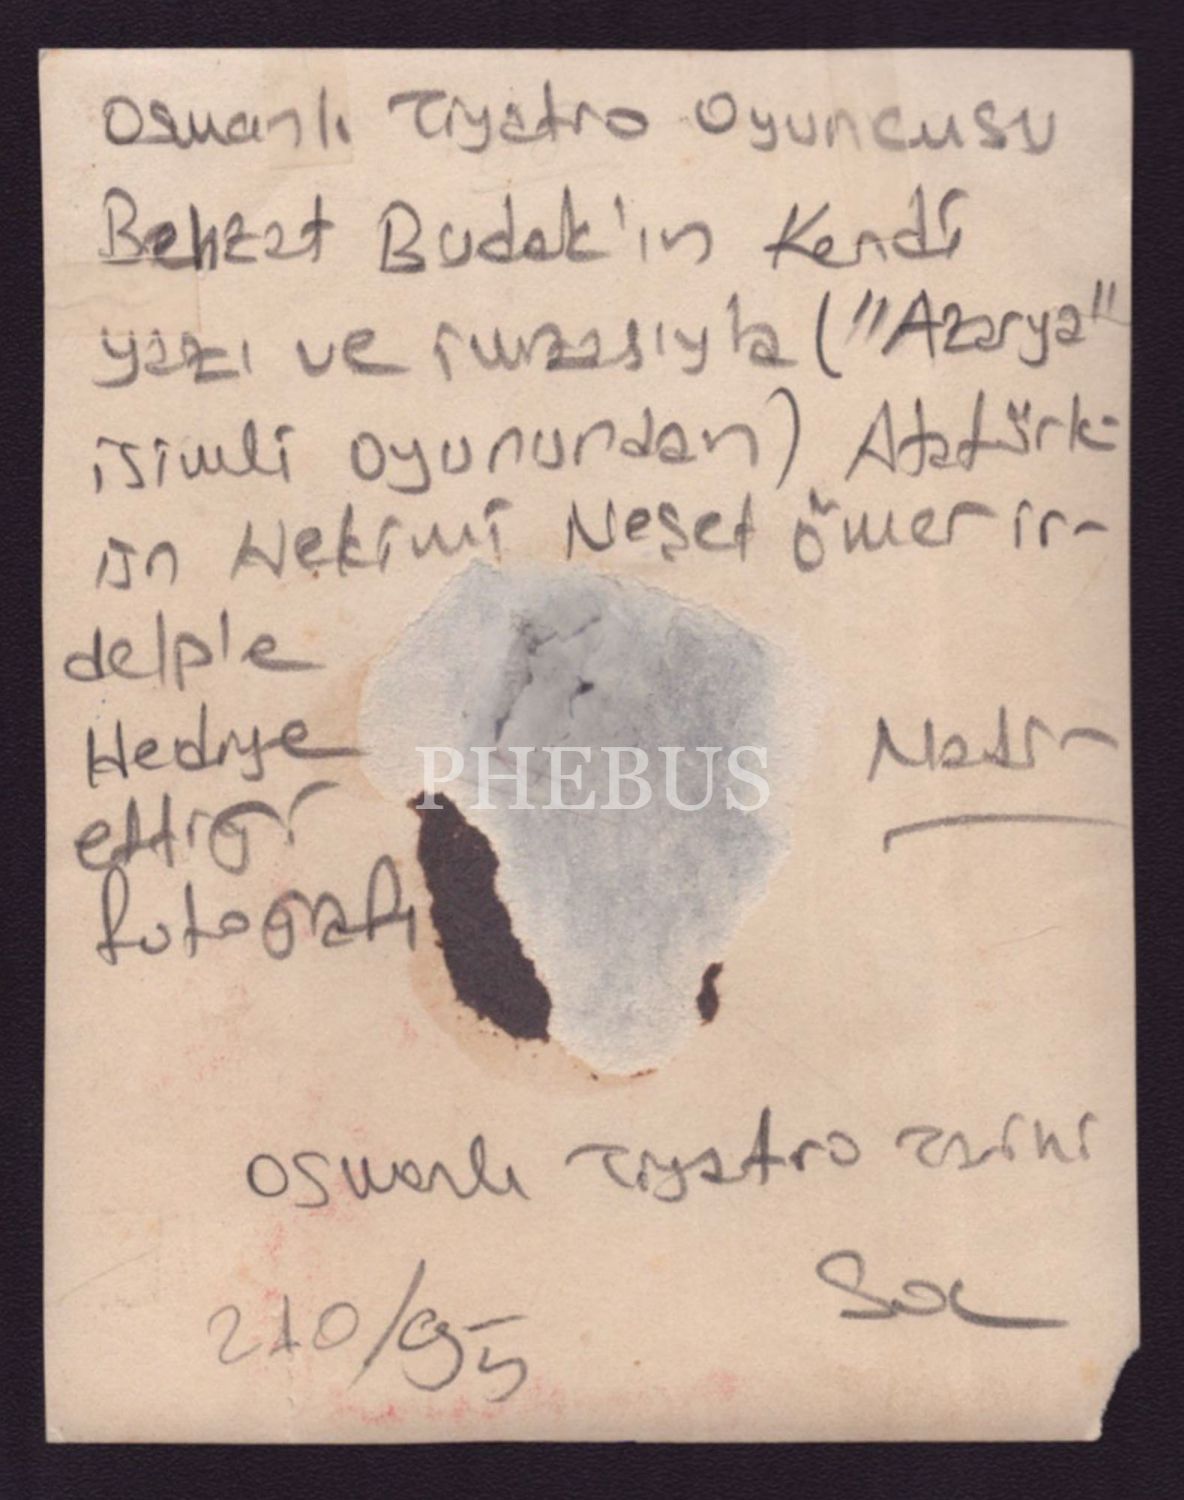 Osmanlı Tiyatro Oyuncusu
Behzat Budak'ın Kendi
yazı ve imzasıyla ("Azarya"
isimli oyunundan) Atatürk-
ün Hekimi Neşet Ömer ir-
delp'e
Hediye
PHEBUS
Nadir
ettiği
fotoğrafı
Osmanlı Tiyatro Tarihi
210/95